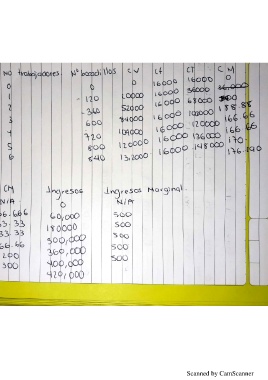 NO trabajadores N° bocadillos CV Cf CT C M
0 0 0 16000 16000 0
1 120 20000 16000 36000
2 360 52000 16000 68000
3 600 84000 16000 100000 166 66
4 720 104000 16000 120000 166 66
5 800 120000 16000 136000 170
6 840 132000 16000 148000 176.190
CM Ingresos Ingresos Marginal
N/A 0 N/A
66.666 60,000 500
33.33 180000 500
33.33 300,000 500
66.66 360,000 500
200 400,000 500
300 420,000
Scanned by CamScanner